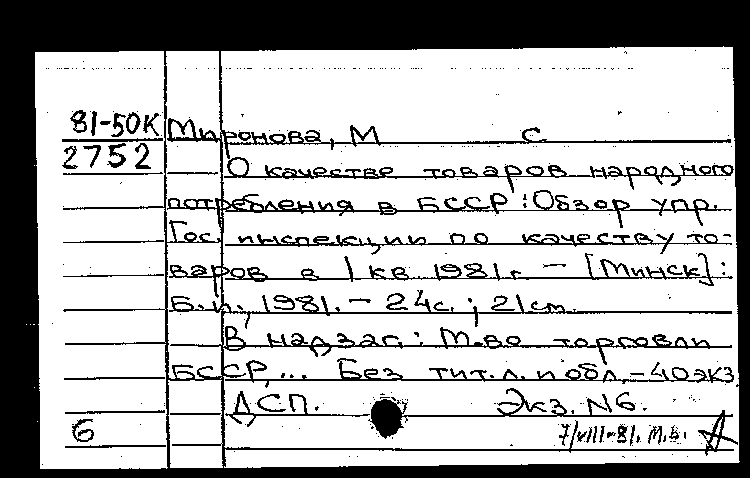 81-50К Миронова, М С
2752 О качестве товаров народного
потребления в БССР : Обзор упр.
Гос. инспекции по качеству то-
варов в I кв 1981г. – [Минск] :
Б.и., 1981. – 24с. ; 21см.
В надзаг. : М-во торговли
БССР,... Без тит.л. и обл. – 40экз
ДСП. Экз. N6.
6 7/VIII-81. М.Б.